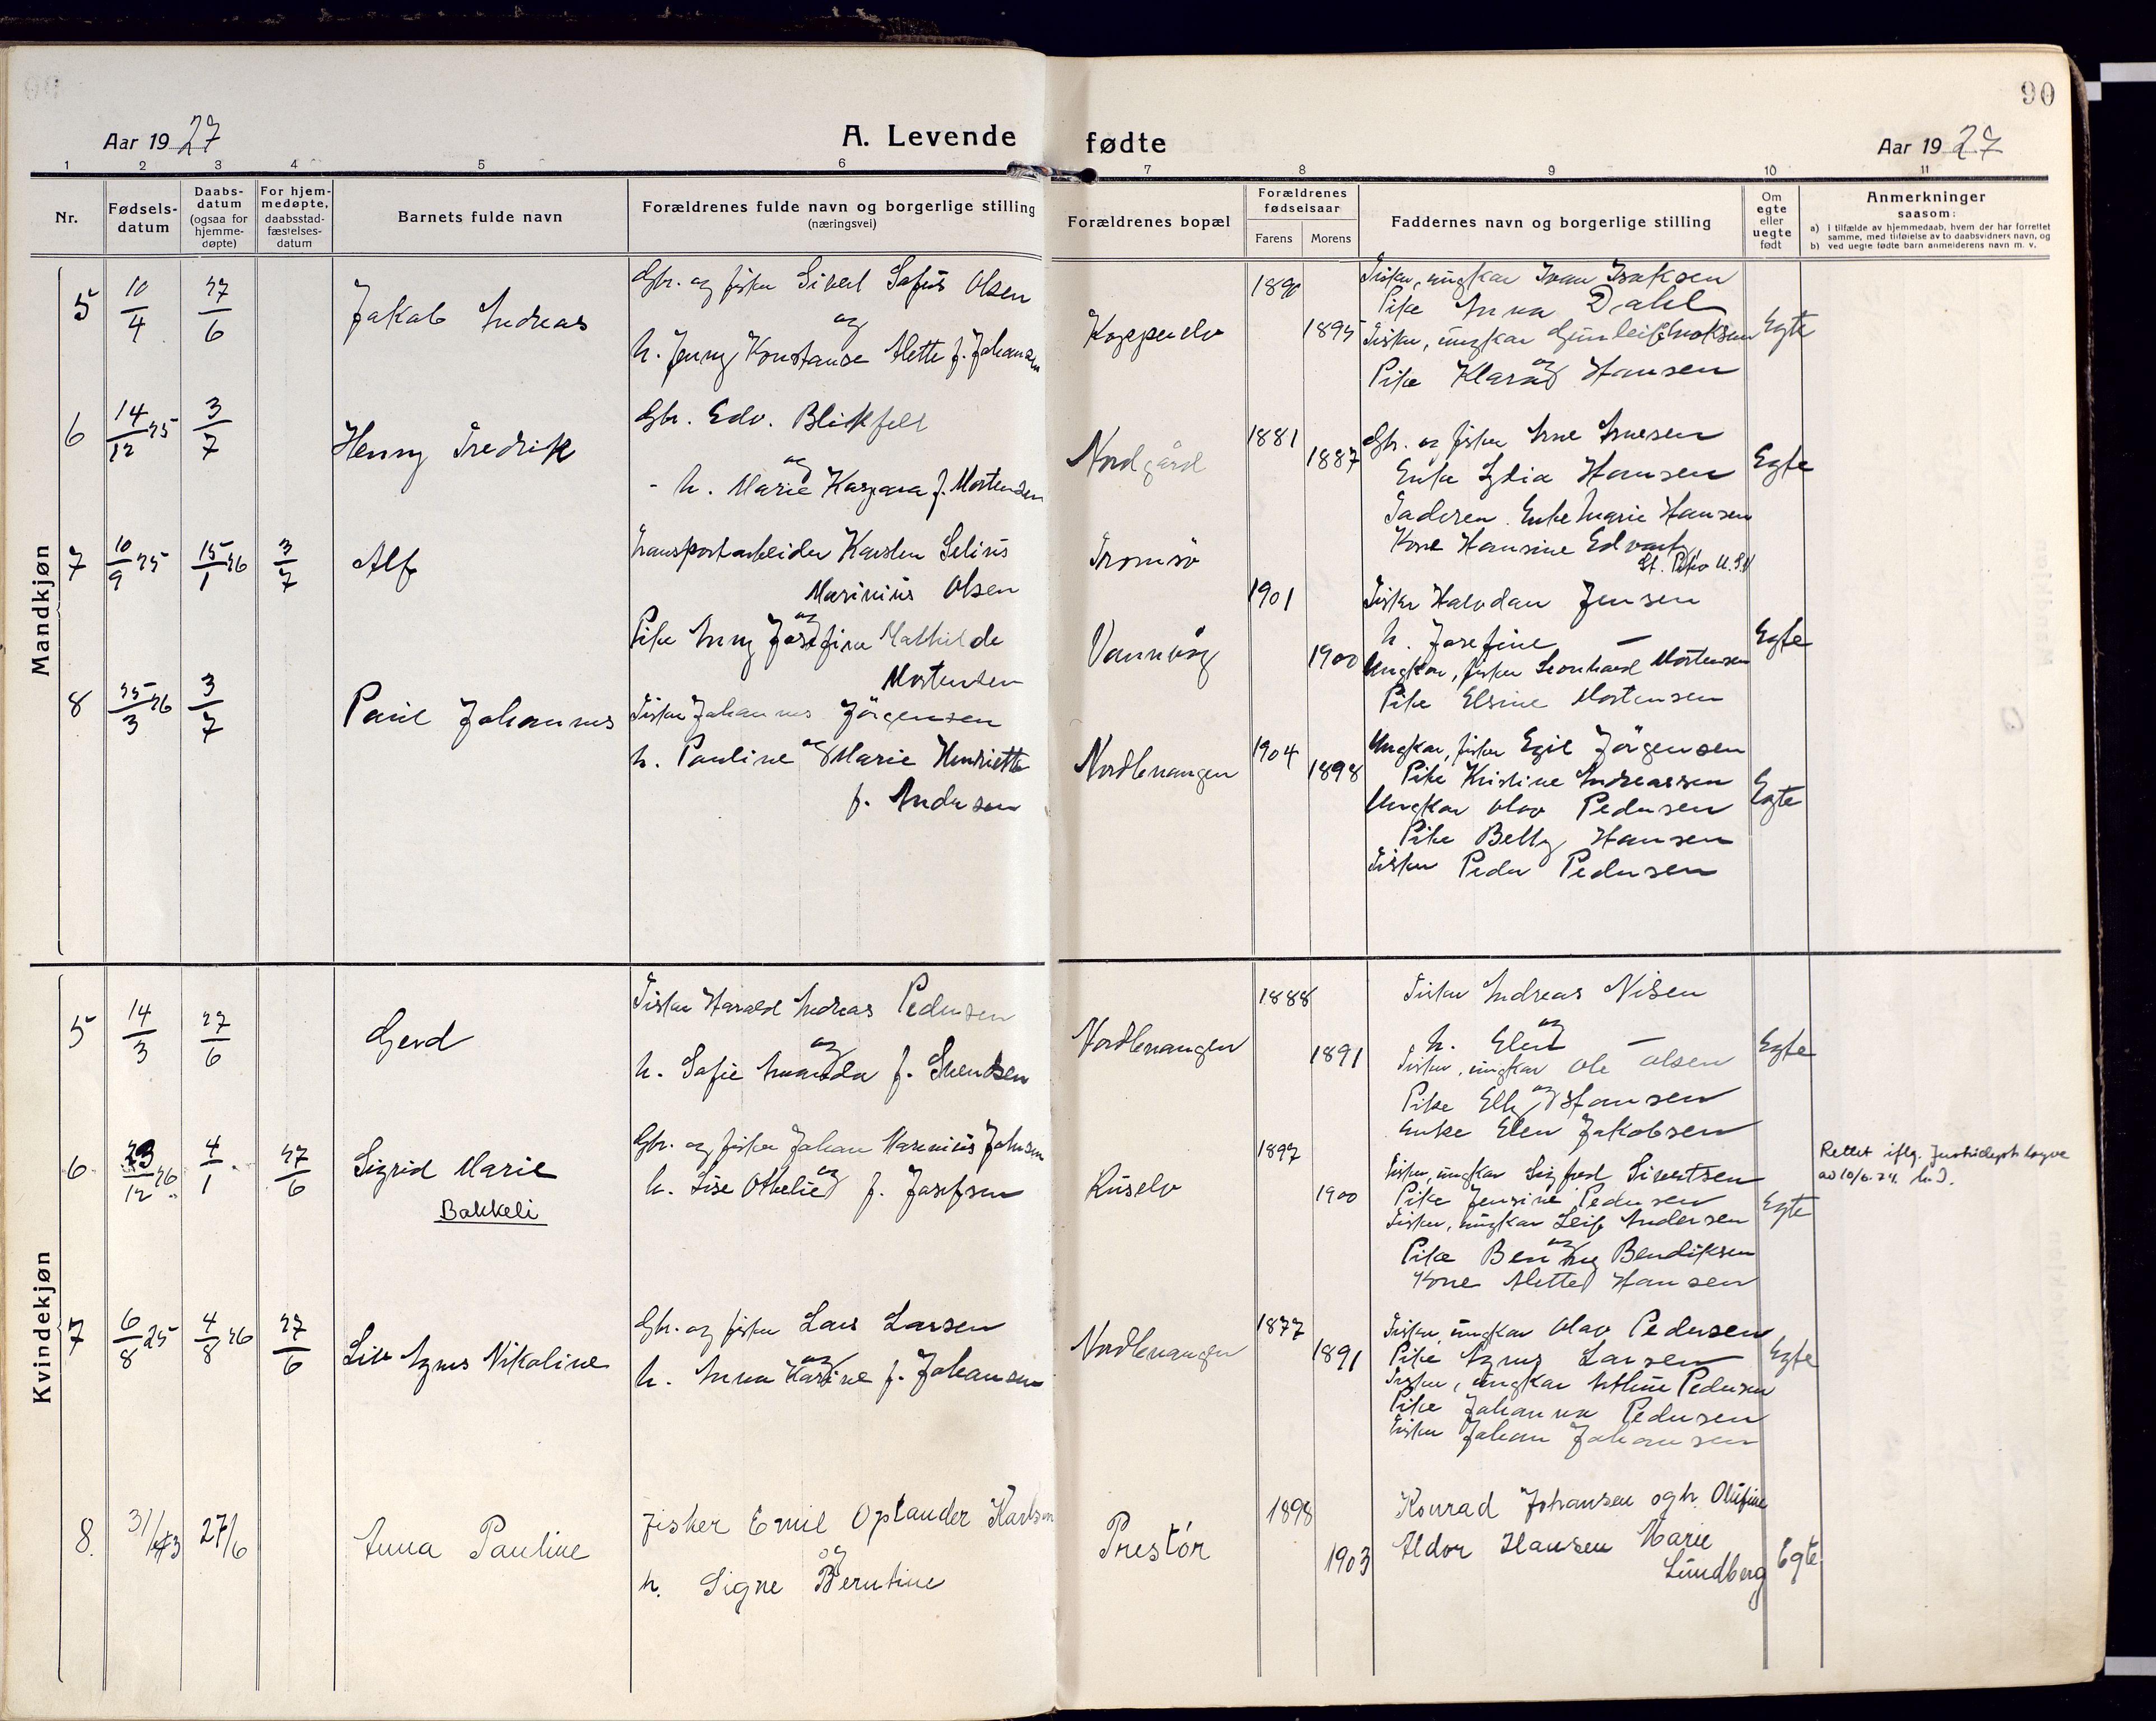 90
Aar 1927
A. Levende fødte
Aar 1927
1 2 3 4 5 6 7 8 9 10 11
Nr.
Fødsels-
datum
Daabs-
datum
(ogsaa for
hjemme-
døpte)
For hjem-
medøpte,
daabsstad-
fæstelses-
datum
Barnets fulde navn
Forældrenes fulde navn og borgerlige stilling
(næringsvei)
Forældrenes bopæl
Forældrenes
fødselsaar
Farens Morens
Faddernes navn og borgerlige stilling
Om
egte
eller
uegte
født
Anmerkninger
saasom:
a) i tilfælde av hjemmedaab, hvem der har forrettet
samme, med tilføielse av to daabsvidners navn, og
b) ved uegte fødte barn anmelderens navn m. v.
Mandkjøn
5 10/4 27/6 Jakob Andreas
Gbr. og fisker Sivert Sofus Olsen
og
h. Jenny Konstanse Alette f. Johansen
Koppenelv 1890 1895
Fisker, ungkar Ivan Isaksen
Pike Anna Dahl
Fisker, ungkar Gunleif Enoksen
og
Pike Klara Hansen
Egte
6 14/12 25 3/7 Henny Fredrik
Gbr. Edv. Blikfelt
og
- h. Marie Kaspara f. Mortensen
Nordgård 1881 1887
Gbr. og fisker Arne Arnesen
Enke Lydia Hansen
Faderen. Enke Marie Hansen
Kone Hansine Edvards
Egte
7 10/9 25 15/1 26 3/7 Alf
Transportarbeider Karsten Selius
Marinius Olsen
og
Pike Anny Josefine Mathilde
Mortensen
Tromsø
Vannvåg 1901 1900
Fisker Halvdan Jensen
h. Josefine —
Ungkar, fisker Leonhard Mortensen
Pike Elsine Mortensen
Egte
8 25/3 26 3/7 Paul Johannes
Fisker Johannes Jörgensen
og
h. Pauline Marie Henriette
f. Andersen
Nordlenangen 1904 1898
Ungkar, fisker Egil Jörgensen
Pike Kristine Andreassen
Ungkar Olav Pedersen
Pike Betty Hansen
Fisker Peder Pedersen
Egte
Kvindekjøn
5 14/3 27/6 Gerd
Fisker Harald Andreas Pedersen
og
h. Sofie Amanda f. Svendsen
Nordlenangen 1888 1891
Fisker Andreas Nilsen
og
h. Elen —
Fisker, ungkar Ole Olsen
og
Pike Elly Hansen
Enke Elen Jakobsen
Egte
6 23/12 26. 4/1 27/6 Sigrid Marie
Bakkeli
Gbr. og fisker Johan Marinius Johnsen
og
h. Lise Othelie f. Josefsen
Ruselv 1897 1900
Fisker, ungkar Sigfred Sivertsen
Pike Jensine Pedersen
Fisker, ungkar Leif Andersen
og
Pike Benny Bendiksen
Kone Alette Hansen
Egte
Rettet iflg.
7 6/8 25 4/8 26 27/6 Liv Agnes Nikoline
Gbr. og fisker Lars Larsen
og
h. Anna Karine f. Johansen
Nordlenangen 1877 1891
Fisker, ungkar Olav Pedersen
Pike Agnes Larsen
Fisker, ungkar Arthur Pedersen
Pike Johanna Pedersen
Fisker Johan Johansen
Egte
8. 31/3 27/6 Anna Pauline
Fisker Emil Oplander Karlsen
og
h. Signe Berntine
Prestór 1898 1903
Konrad Johansen og h. Olufine
Aldor Hansen Marie
Lundberg
Egte